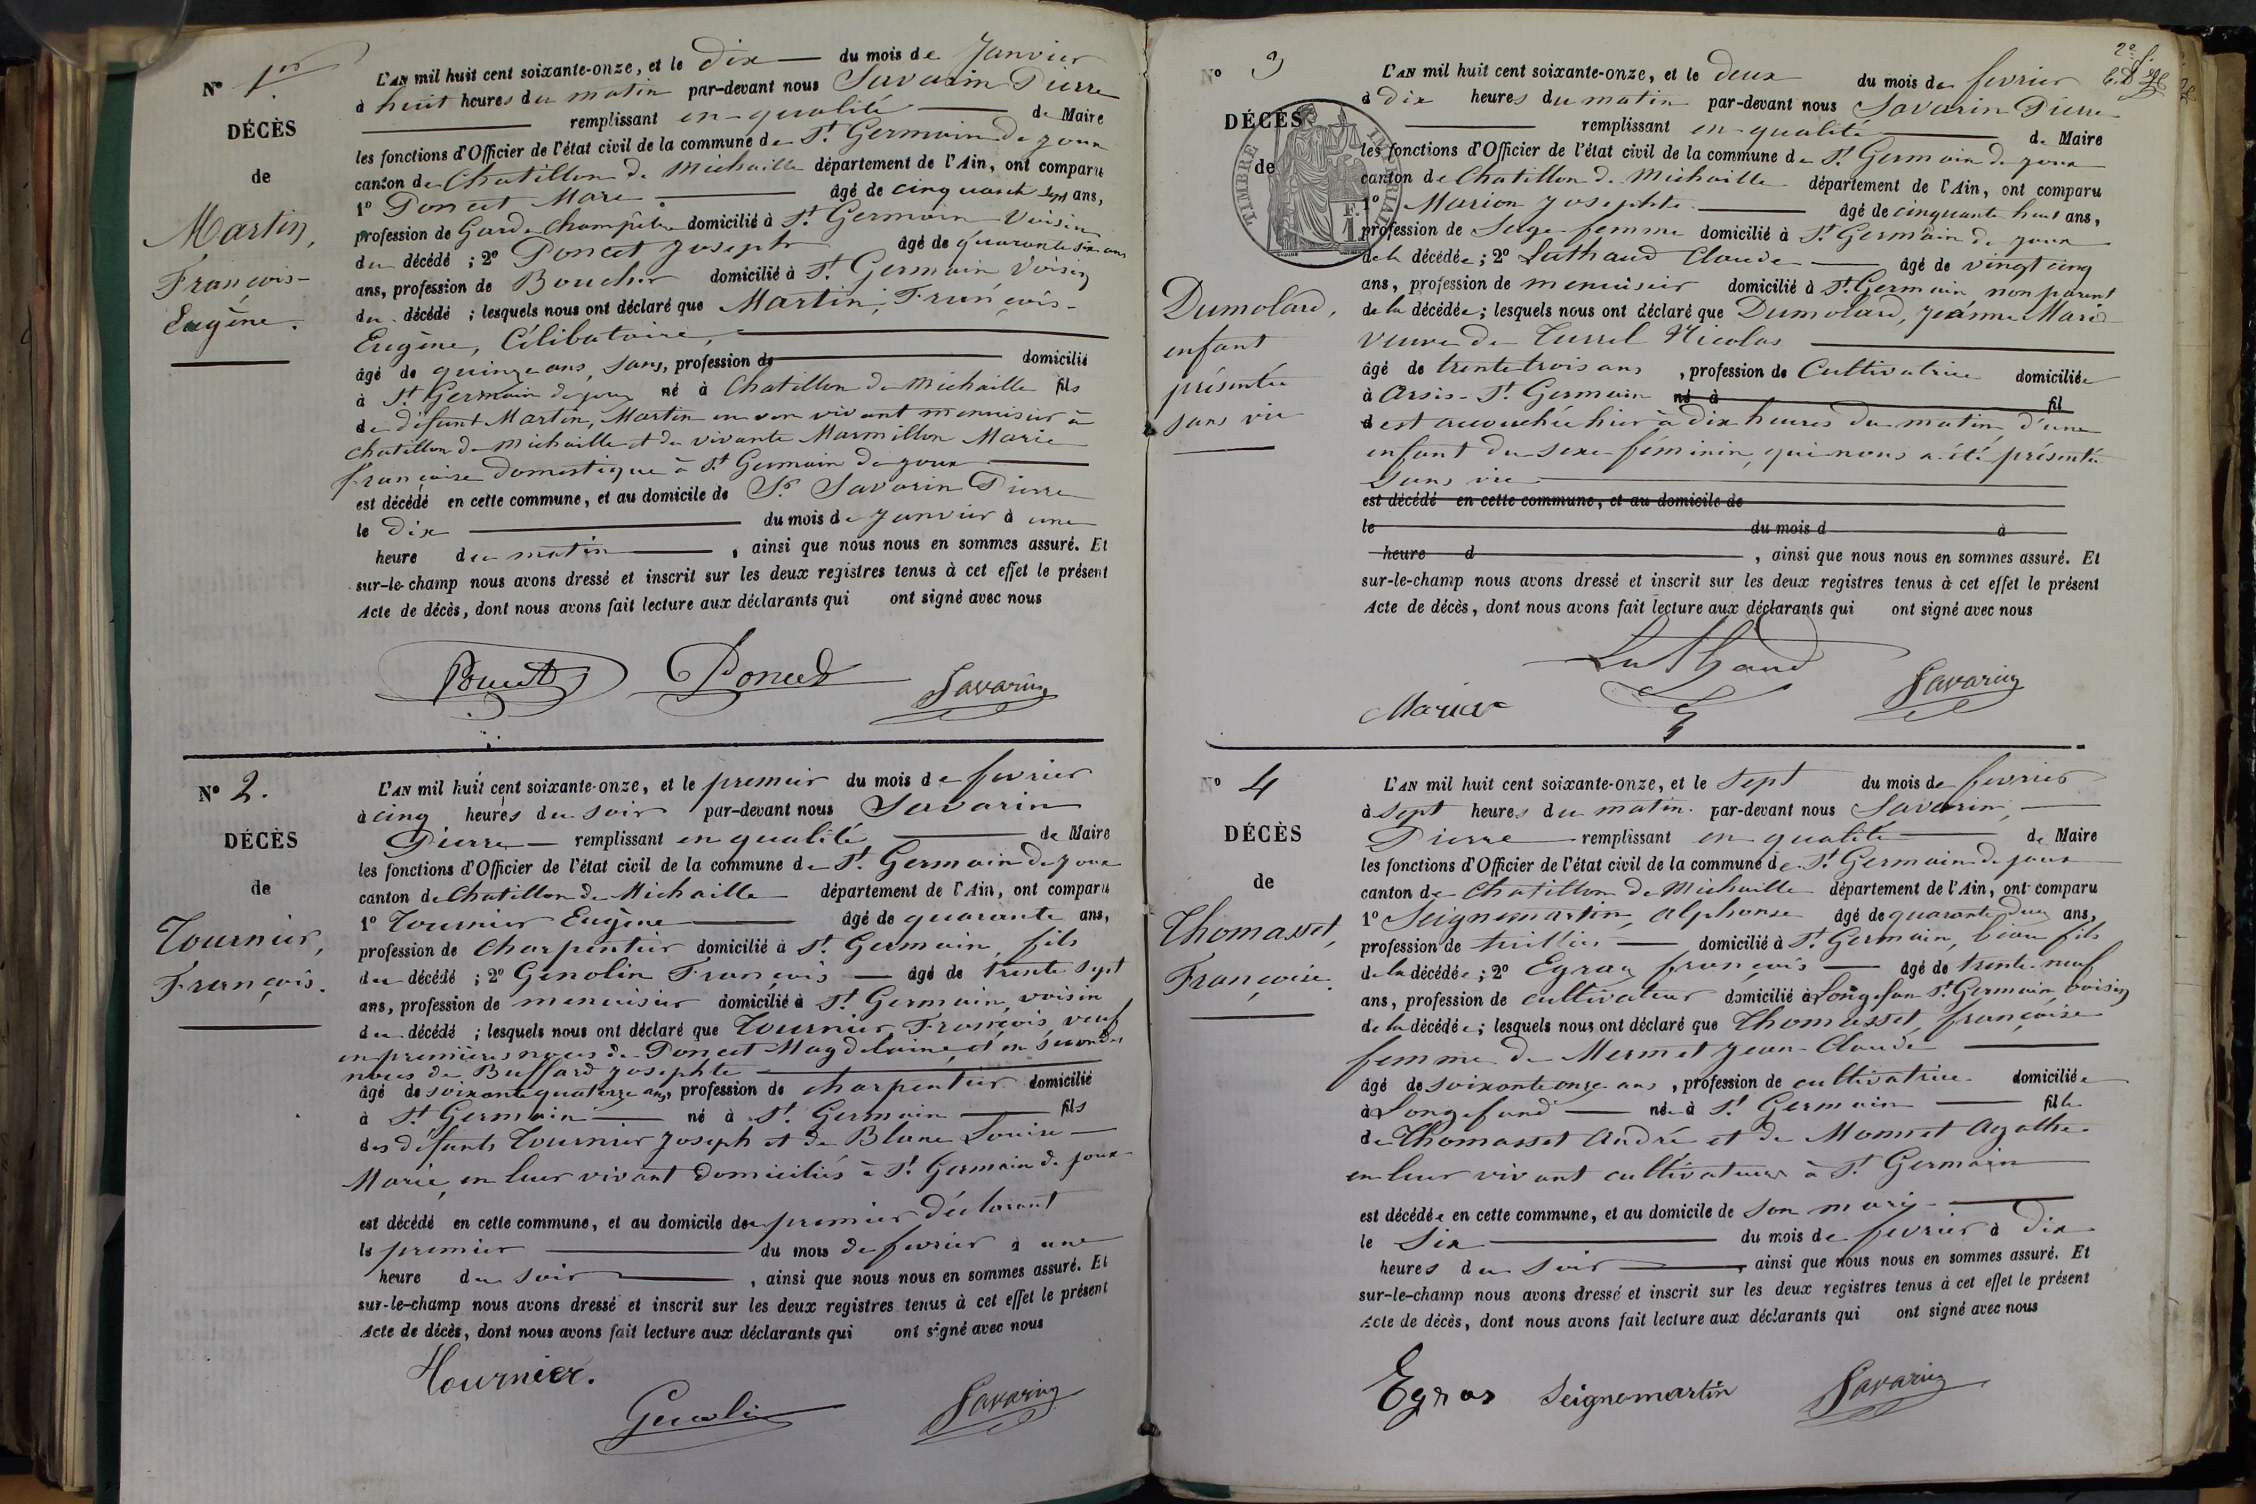 Nº 1er
DÉCÈS
de
Martin,
François-
Eugène.
L'AN mil huit cent soixante-onze, et le dix du mois de Janvier
à huit heures du matin par-devant nous Savarin Pierre
remplissant en qualité de Maire
les fonctions d'Officier de l'état civil de la commune de St Germain de joux
canton de Chatillon de Michaille département de l'Ain, ont comparu
1º Poncet Marc âgé de cinquante sept ans,
profession de Garde champêtre domicilié à St Germain Voisin
du décédé ; 2º Poncet Joseph âgé de quarante six ans
ans, profession de Boucher domicilié à St Germain Voisin
du décédé ; lesquels nous ont déclaré que Martin, François-
Eugène, Célibataire,
âgé de quinze ans, sans, profession de domicilié
à St Germain de joux né à Chatillon de Michaille fils
de défunt Martin, Martin en son vivant menuisier à
chatillon de Michaille et de vivante Marmillon Marie
françoise domestique à St Germain de joux
est décédé en cette commune, et au domicile de Sr Savarin Pierre
le dix du mois de Janvier à une
heure du matin , ainsi que nous nous en sommes assuré. Et
sur-le-champ nous avons dressé et inscrit sur les deux registres tenus à cet effet le présent
Acte de décès, dont nous avons fait lecture aux déclarants qui ont signé avec nous
Poncet Poncet Savarin
Nº 2.
DÉCÈS
de
Tournier,
François.
L'AN mil huit cent soixante-onze, et le premier du mois de fevrier
à cinq heures du soir par-devant nous Savarin
Pierre remplissant en qualité de Maire
les fonctions d'Officier de l'état civil de la commune de St Germain de joux
canton de Chatillon de Michaille département de l'Ain, ont comparu
1º Tournier Eugène âgé de quarante ans,
profession de Charpentier domicilié à St Germain, fils
du décédé ; 2º Genolin François âgé de trente sept
ans, profession de menuisier domicilié à St Germain, voisin
du décédé ; lesquels nous ont déclaré que Tournier, François, veuf
en premières noces de Poncet Magdelaine, et en secondes
noces de Buffard Josephte
âgé de soixante quatorze ans, profession de charpentier domicilié
à St Germain né à St Germain fils
des défunts Tournier Joseph et de Blanc Louise
Marie, en leur vivant domiciliés à St Germain de joux
est décédé en cette commune, et au domicile du premier déclarant
le premier du mois de fevrier à une
heure du soir , ainsi que nous nous en sommes assuré. Et
sur-le-champ nous avons dressé et inscrit sur les deux registres tenus à cet effet le présent
Acte de décès, dont nous avons fait lecture aux déclarants qui ont signé avec nous
Tournier.
Genolin Savarin
2e f.
Nº 3
DÉCÈS
de
TIMBRE IMPERIAL
1 F.
Dumolard,
enfant
présentée
sans vie
L'AN mil huit cent soixante-onze, et le deux du mois de fevrier
à dix heures du matin par-devant nous Savarin Pierre
remplissant en qualité de Maire
les fonctions d'Officier de l'état civil de la commune de St Germain de joux
canton de Chatillon de Michaille département de l'Ain, ont comparu
1º Marion Josephte âgé de cinquante huit ans,
profession de Sage femme domicilié à St Germain de joux
de la décédée ; 2º Luthaud Claude âgé de vingt cinq
ans, profession de menuisier domicilié à St Germain, non parent
de la décédée ; lesquels nous ont déclaré que Dumolard, jeanne Marie
veuve de Turrel Nicolas
âgé de trente trois ans , profession de Cultivatrice domiciliée
à Arsis - St Germain né à fil
d est accouchée hier à dix heures du matin d'une
enfant du sexe féminin, qui nous a été présentée
sans vie
est décédé en cette commune, et au domicile de
le du mois d à
heure d , ainsi que nous nous en sommes assuré. Et
sur-le-champ nous avons dressé et inscrit sur les deux registres tenus à cet effet le présent
Acte de décès, dont nous avons fait lecture aux déclarants qui ont signé avec nous
Luthaud
Savarin
Nº 4
DÉCÈS
de
Thomasset,
Françoise.
L'AN mil huit cent soixante-onze, et le sept du mois de fevrier
à sept heures du matin par-devant nous Savarin,
Pierre remplissant en qualité de Maire
les fonctions d'Officier de l'état civil de la commune de St Germain de joux
canton de Chatillon de Michaille département de l'Ain, ont comparu
1º Seignemartin, alphonse âgé de quarante deux ans,
profession de domicilié à St Germain, beau fils
de la décédée ; 2º Egraz françois âgé de trente neuf
ans, profession de cultivateur domicilié à Longefan St Germain voisin
de la décédée ; lesquels nous ont déclaré que Thomasset, françoise
femme de Mermet Jean-Claude
âgé de soixante onze ans , profession de cultivatrice domiciliée
à Longefand née à St Germain fille
de Thomasset André et de Monnet Agathe
en leur vivant cultivateurs à St Germain
est décédée en cette commune, et au domicile de son mari
le six du mois de fevrier à dix
heures du soir , ainsi que nous nous en sommes assuré. Et
sur-le-champ nous avons dressé et inscrit sur les deux registres tenus à cet effet le présent
Acte de décès, dont nous avons fait lecture aux déclarants qui ont signé avec nous
Egraz Seignemartin Savarin